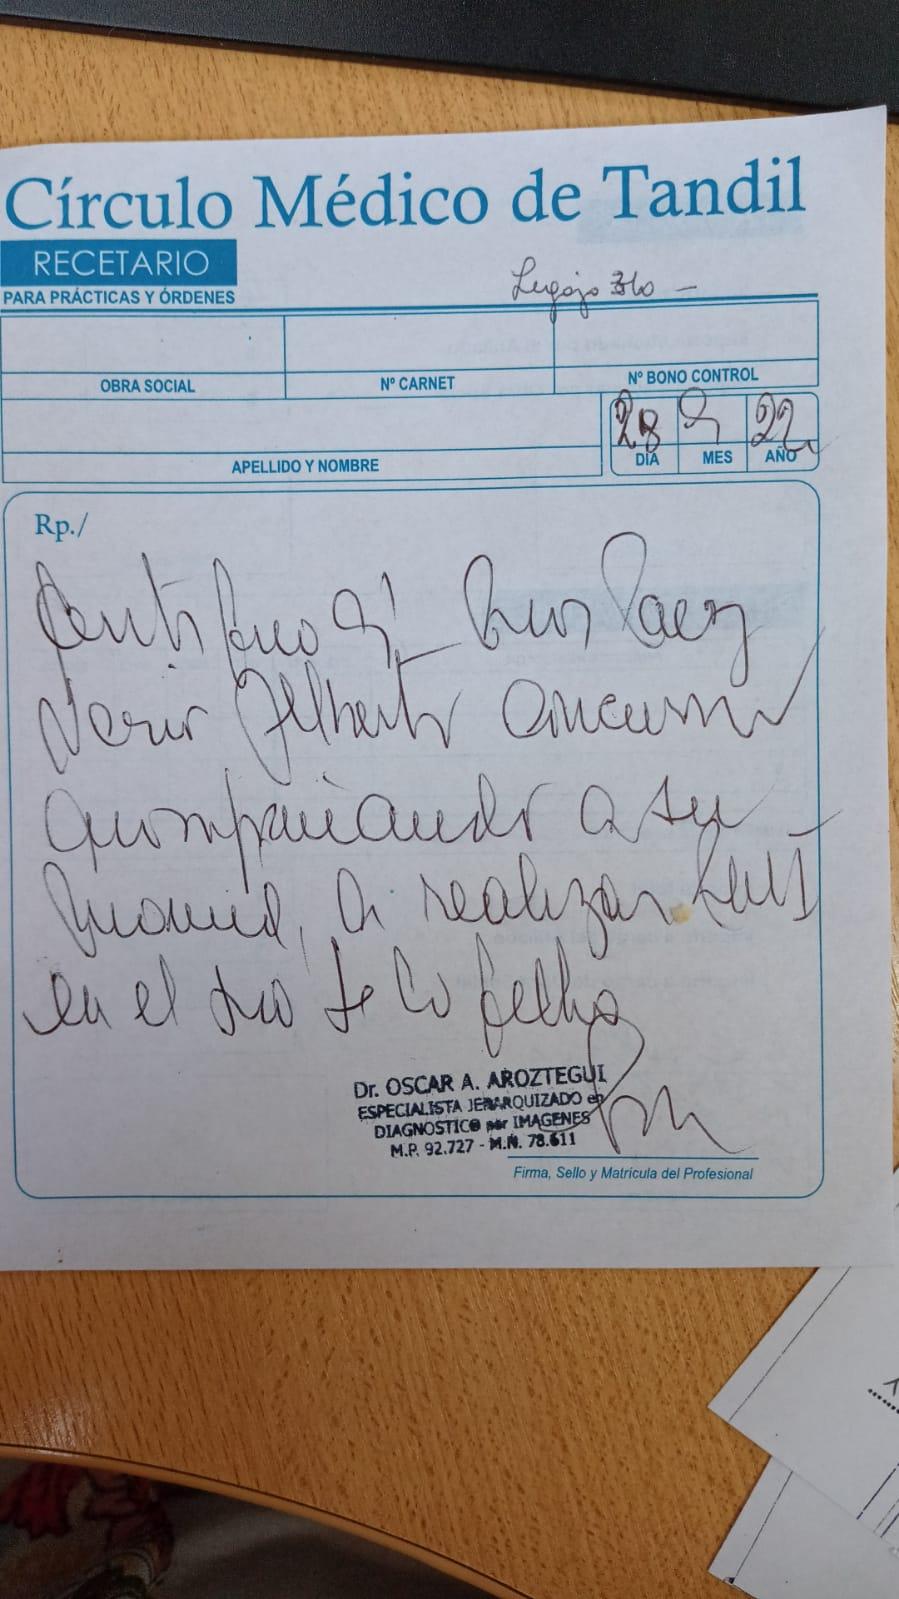 Círculo Médico de Tandil
RECETARIO
PARA PRÁCTICAS Y ÓRDENES
Legajo
OBRA SOCIAL
Nº CARNET
Nº BONO CONTROL
28 9 22
APELLIDO Y NOMBRE
DÍA
MES
AÑO
Rp./
Certifico q' Paez
Dario Gilberto
acompañando a su
mamá, a realizar
en el día de la fecha
Dr. OSCAR A. AROZTEGUI
ESPECIALISTA JERARQUIZADO en
DIAGNOSTICO por IMAGENES
M.P. 92.727 - M.N. 78.611
Firma, Sello y Matricula del Profesional